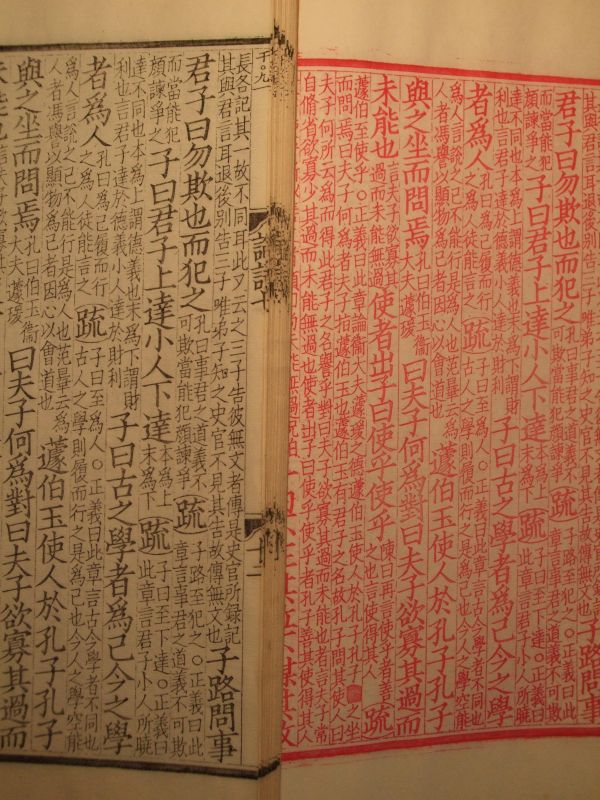 其與君言耳退後別告三子唯弟子知之史官不見其告故傳無文也子路問事
君子曰勿欺也而犯之孔曰事君之道義不可欺當能犯顏諫爭疏子路至犯之○正義曰此章言事君之道義不可欺
而當能犯顏諫爭子曰君子上達小人下達本為上末為下疏子曰至下達○正義曰此章言君子小人所曉
達不同也本為上謂德義也末為下謂財利也言君子達於德義小人達於財利子曰古之學者為己今之學
者為人孔曰為己履而行之為人徒能言之疏子曰至為人○正義曰此章言古今學者不同也古人之學則履而行之是為己也今人之學空能
為人言說之己不能行是為人也范曄云為人者馮譽以顯物為己者因心以會道也蘧伯玉使人於孔子孔子
與之坐而問焉孔曰伯玉衞大夫蘧瑗曰夫子何為對曰夫子欲寡其過而
未能也言夫子欲寡其過而未能無過使者出子曰使乎使乎陳曰再言使乎者善之也言使得其人疏
蘧伯至使乎○正義曰此章論衞大夫蘧瑗之德蘧伯玉使人於孔子孔子與之坐
而問焉曰夫子何為者夫子指蘧伯玉也蘧伯玉有君子之名故孔子問其使人曰
夫子何所云為而得此君子之名譽乎對曰夫子欲寡其過而未能也者言夫子常
自脩省欲寡少其過而未能無過也使者出子曰使乎使乎者孔子善其使得其人
論語十
長各記其一故不同耳此又云之三子告彼無文者傳是史官所錄記
其與君言耳退後別告三子唯弟子知之史官不見其告故傳無文也子路問事
君子曰勿欺也而犯之孔曰事君之道義不可欺當能犯顏諫爭疏子路至犯之○正義曰此章言事君之道義不可欺
而當能犯顏諫爭子曰君子上達小人下達本為上末為下疏子曰至下達○正義曰此章言君子小人所曉
達不同也本為上謂德義也末為下謂財利也言君子達於德義小人達於財利子曰古之學者為己今之學
者為人孔曰為己履而行之為人徒能言之疏子曰至為人○正義曰此章言古今學者不同也古人之學則履而行之是為己也今人之學空能
為人言說之己不能行是為人也范曄云為人者馮譽以顯物為己者因心以會道也蘧伯玉使人於孔子孔子
與之坐而問焉孔曰伯玉衞大夫蘧瑗曰夫子何為對曰夫子欲寡其過而